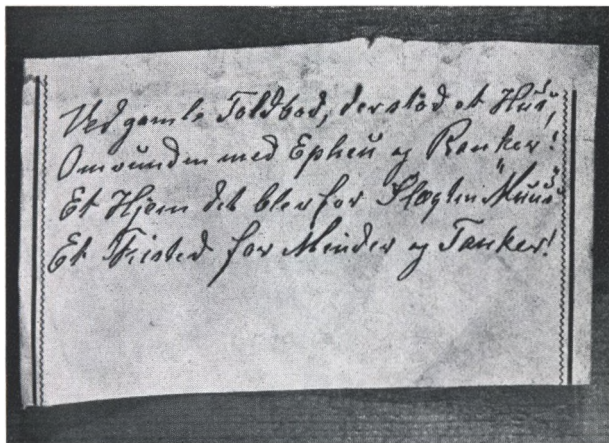 Ved gamle Toldbod, der stod et Huus,
Omvunden med Epheu og Ranker!
Et Hjem det blev for Slægten "Muus"
Et Fristed for Minder og Tanker!